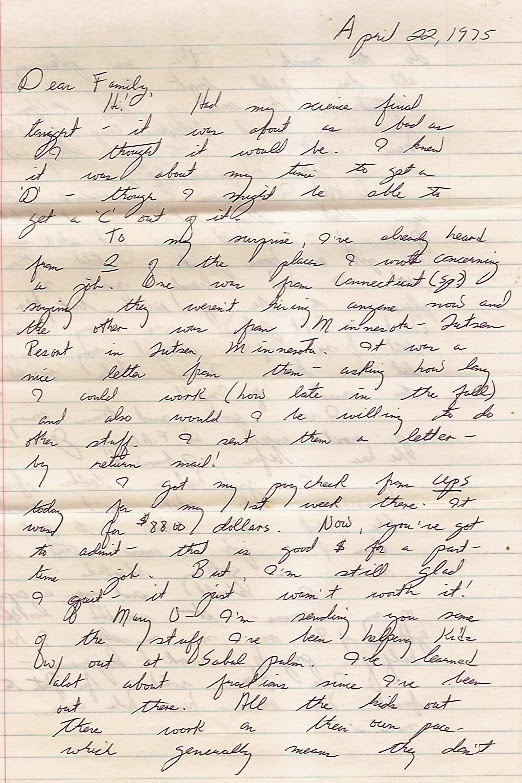 April 22, 1975
Dear Family,
Hi! Had my science final
tonight - it was about as bad as
I thought it would be. I knew
it was about my time to get a
'D' - though I might be able to
get a 'C' out of it.
To my surprise, I've already heard
from 2 of the places I wrote concerning
a job. One was from Connecticut (sp?)
saying they weren't hiring anyone now and
the other was from Minnesota - Lutsen
Resort in Lutsen, Minnesota. It was a
nice letter from them - asking how long
I could work (how late in the fall)
and also would I be willing to do
other stuff. I sent them a letter -
by return mail!
I got my paycheck from UPS
today for my 1st week there. It
was for $88.00 dollars. Now, you've got
to admit - that is good $ for a part-
time job. But, I'm still glad
I quit - it just wasn't worth it!
Mary O - I'm sending you some
of the stuff I've been helping kids
w/ out at Sabal palm. I've learned
alot about fractions since I've been
out there. All the kids out
there work on their own pace -
which generally means they don't